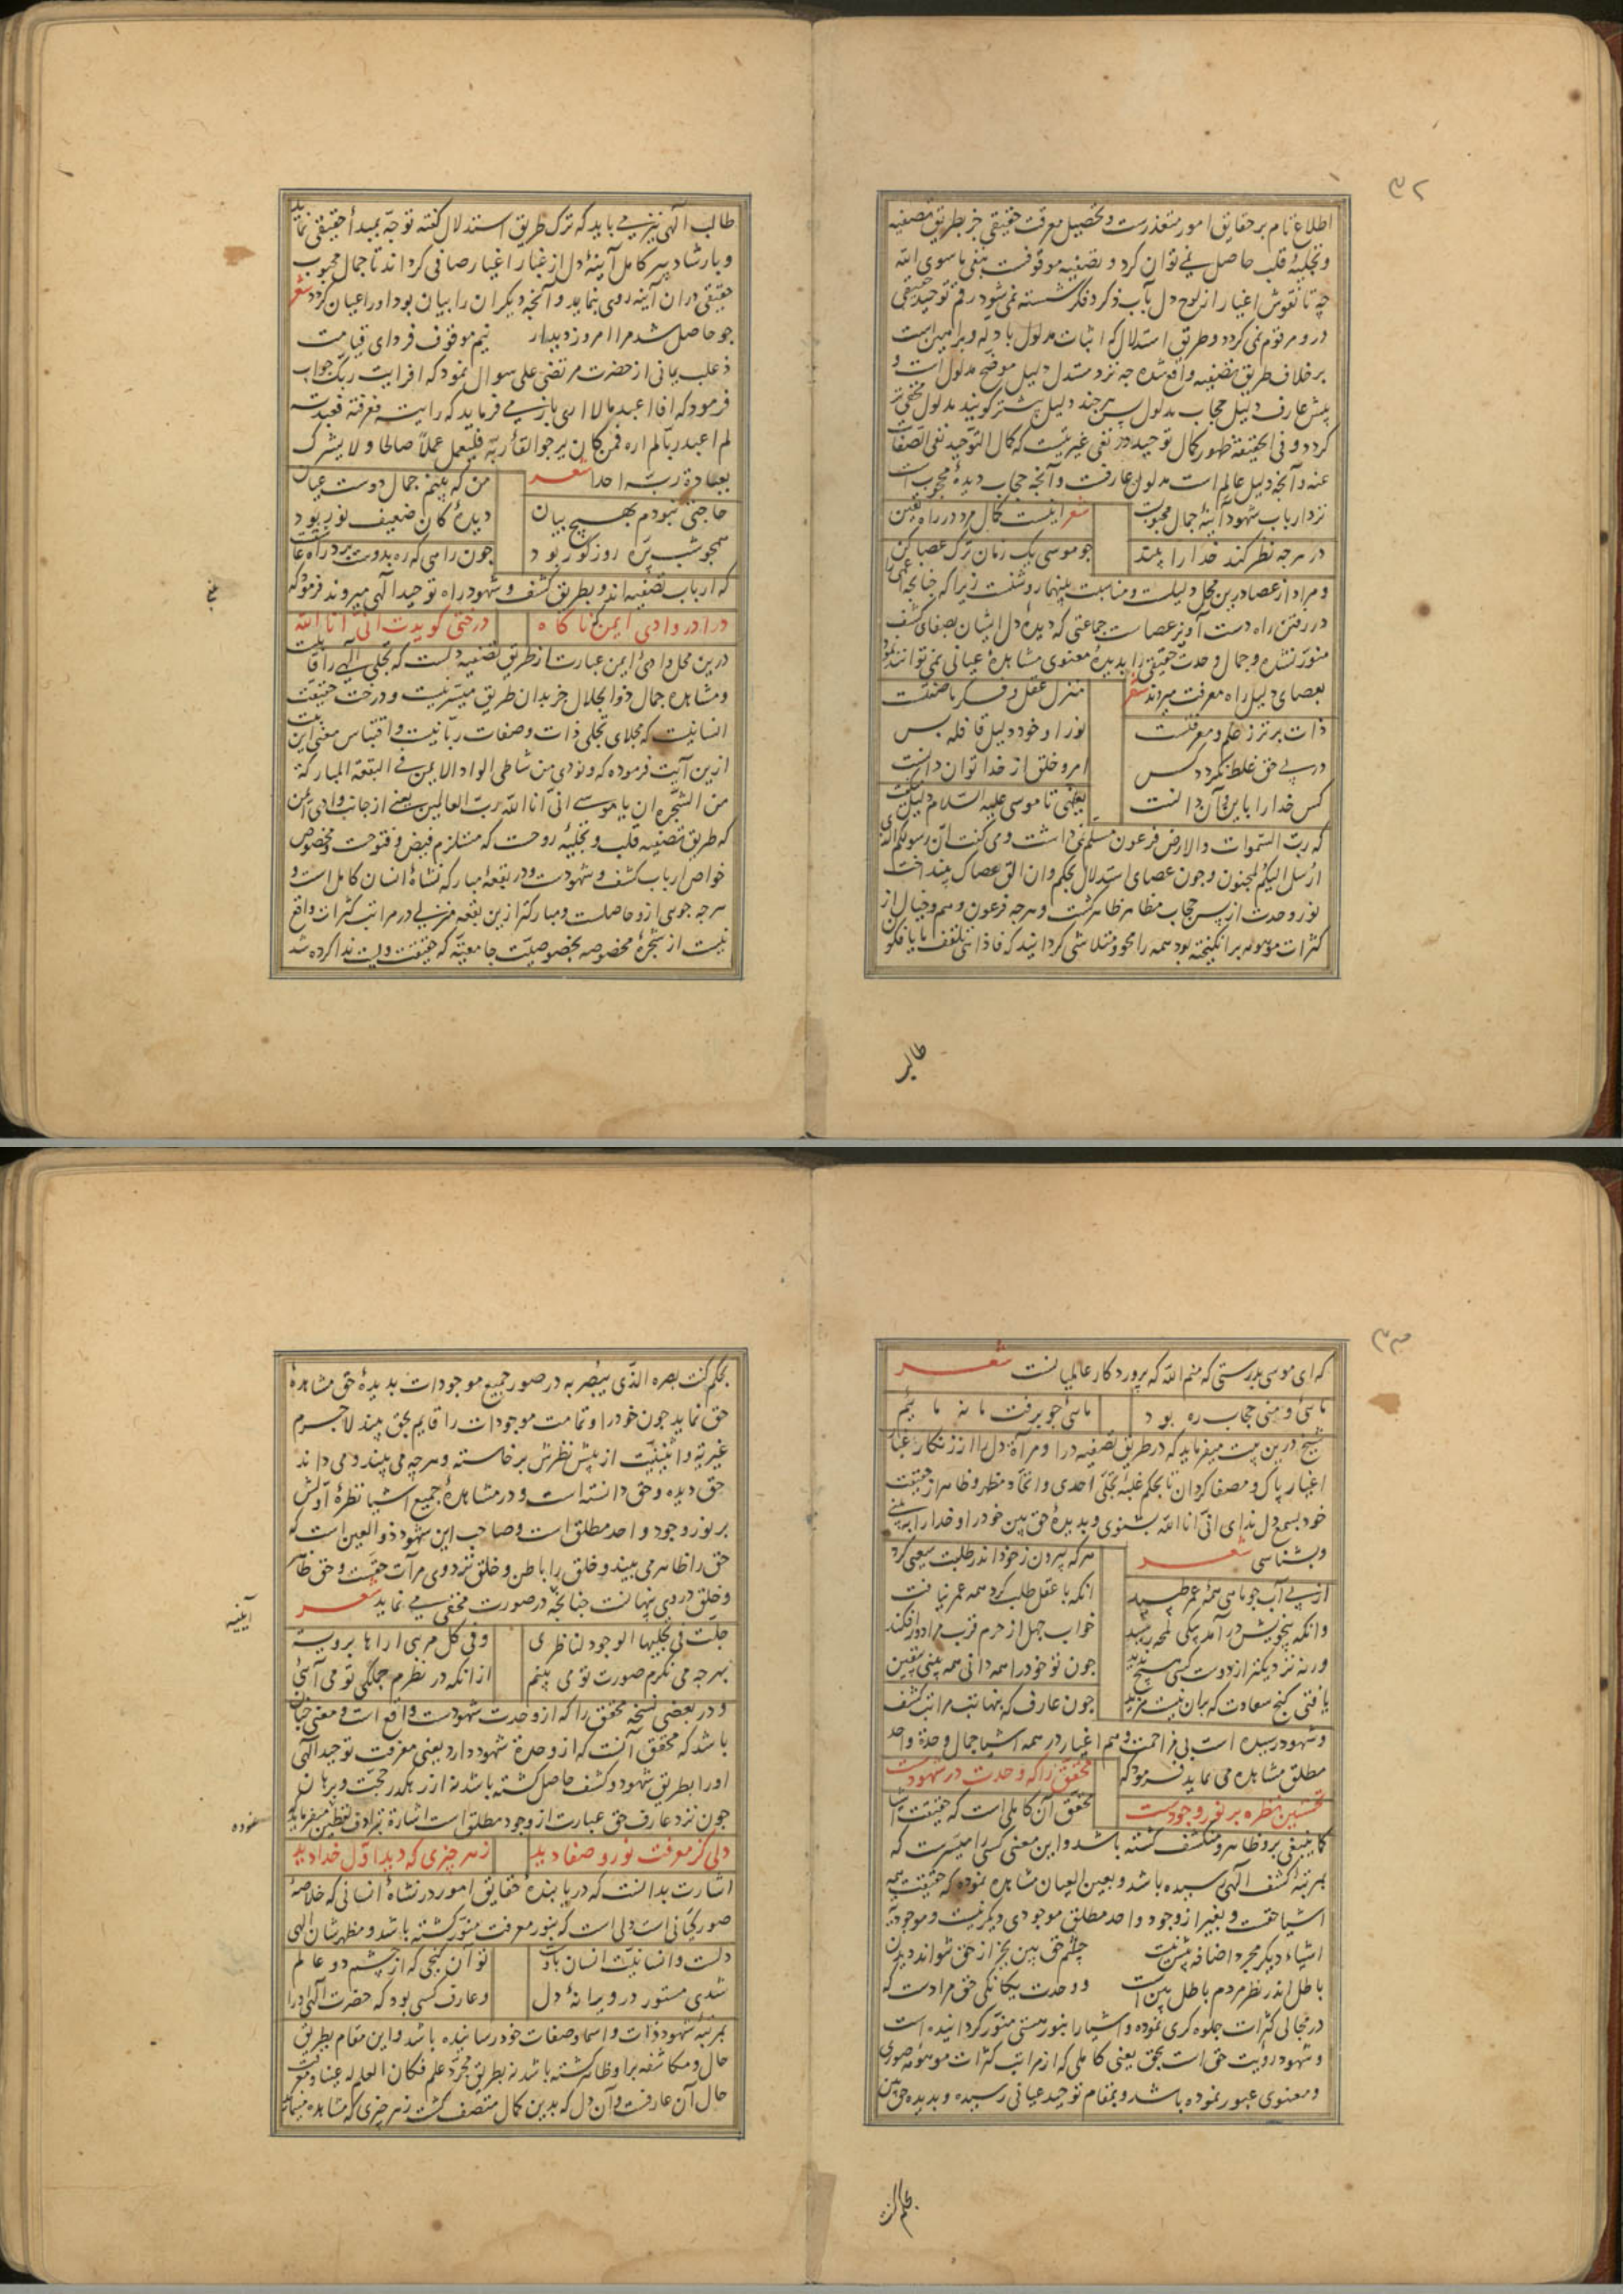 ۳۲
اطلاع تام بر حقایق امور متعذرست و تحصیل معرفت حقیقی جز بطریق تصفیه
و تجلیهٔ قلب حاصل نمی توان کرد و تصفیه موقوفست بنفی ما سوی الله
چه تا نقوش اغیار از لوح دل بآب ذکر و فکر شسته نمی شود رقم توحید حقیقی
درو مرقوم نمی کردد و طریق استدلال که اثبات مدلول بادله و براهین است
بر خلاف طریق تصفیه واقع شده چه نزد مستدل دلیل موضح مدلول است و
پیش عارف دلیل حجاب مدلول پس هر چند دلیل بیشتر کویند مدلول مخفی تر
کردد و فی الحقیقة ظهور کمال توحید در نفی غیریتست که کمال التوحید نفی الصفات
عنه و آنچه دلیل عالم است مدلول عارفست و آنچه حجاب دیدهٔ محجوب است
نزد ارباب شهود آینهٔ جمال محبوبست شعر اینست کمال مرد در راه یقین
در هرچه نظر کند خدا را بیند چو موسی یک زمان ترک عصا کن
و مراد از عصا درین محل دلیلست و مناسبت بینهما روشنست زیرا که چنانچه اعمی را
در رفتن راه دست آویز عصاست جماعتی که دیدهٔ دل ایشان بصفای کشف
منور نشده و جمال وحدت حقیقی را بدیدهٔ معنوی مشاهدهٔ عیانی نمی توانند نمود
بعصای دلیل راه معرفت میروند شعر منزل عقل و فکر ما صفتست
ذات برتر ز علم و معرفتست نور او خود دلیل قافله بس
در پی حق غلط نکردد کس امر و خلق از خدا توان دانست
کس خدا را باین و آن دانست یعنی تا موسی علیه السلام دلیل میکفت
که رب السموات والارض فرعون مسلم نمی داشت و می کفت ان رسولکم الذی
ارسل الیکم لمجنون و چون عصای استدلال بحکم و ان الق عصاک بینداخت
نور وحدت از پس حجاب مظاهر ظاهر کشت و هرچه فرعون وهم و خیال از
کثرات موهومه برانکیخته بود همه را محو و متلاشی کردانید که فاذا هی تلقف ما یافکون
طالب
طالب الهی نیز می باید که ترک طریق استدلال کفته توجه بمبدأ حقیقی نماید
و بارشاد پیر کامل آینهٔ دل از غبار اغیار صافی کرداند تا جمال محبوب
حقیقی در ان آینه روی بنماید و آنچه دیکران را بیان بود او را عیان کردد شعر
چو حاصل شد مرا امروز دیدار نیم موقوف فردای قیامت
ذعلب یمانی از حضرت مرتضی علی سوال نمود که افرایت ربک جواب
فرمود که افا اعبد ما لا اری باز می فرماید که رایته فعرفته فعبدته
لم اعبد ربا لم اره فمن کان یرجوا لقاء ربه فلیعمل عملا صالحا و لا یشرک
بعبادة ربه احدا شعر من که بینم جمال دوست عیان
حاجتی نبودم بهیچ بیان دیدهٔ کان ضعیف نور بود
همچو شب پره روز کور بود چون راهی که ره بدوست برد راه
که ارباب تصفیه اند و بطریق کشف و شهود راه توحید الهی میروند فرمود که
درا در وادی ایمن که ناکاه درختی کویدت انی انا الله
درین محل وادی ایمن عبارت از طریق تصفیه دلست که تجلی الهی را قابلست
و مشاهدهٔ جمال ذو الجلال جز بدان طریق میسر نیست و درخت حقیقت
انسانیت که مجلای تجلی ذات و صفات ربانیت و اقتباس معنی این بیت
ازین آیت فرموده که و نودی من شاطی الواد الایمن فی البقعة المبارکة
من الشجرة ان یا موسی انی انا الله رب العالمین یعنی از جانب وادی ایمن
که طریق تصفیهٔ قلب و تجلیهٔ روحست که مستلزم فیض و فتوحست و مخصوص
خواص ارباب کشف و شهودست و در بقعهٔ مبارکه نشاهٔ انسان کامل است و
هرچه جوی ازو حاصلست و مبارکتر ازین بقعه منزلی در مراتب کثرات واقع
نیست از شجرهٔ مخصوصه بخصوصیت جامعیّة که حقیقت ویست ندا کرده شد
۳۳
که ای موسی بدرستی که منم الله که پروردکار عالمیانست شعر
مائی و منی حجاب ره بود مائی چو برفت ما نه مائیم
شیخ درین بیت میفرماید که در طریق تصفیه درا و مرآة دل را از زنکار غبار
اغیار پاک و مصفا کردان تا بحکم غلبهٔ تجلی احدی و اتحاد مظهر و ظاهر از حقیقت
خود بسمع دل ندای انی انا الله بشنوی و بدیدهٔ حق بین خود را و خدا را ببینی
و بشناسی شعر هر که بیرون ز خود اندر طلبت سعیی کرد
از پی آب چو ماهی همه عمر طپید انکه با عقل طلب کرد همه عمر نیافت
وانکه بیخویش درآمد بیکی لمحه رسید خواب جهل از حرم قرب مرا دور افکند
ورنه نزدیکتر از دوست کسی هیچ ندید چون تو خود را همه دانی همه بینی بیقین
یافتی کنج سعادت که بران نیست مزید چون عارف که بنهایت مراتب کشف
و شهود رسیده است بی مزاحمت وهم اغیار در همه اشیا جمال وحدة واحد
مطلق مشاهده می نماید فرمود که محقق را که وحدت در شهودست
نخستین نظره بر نور وجودست محقق آن کاملی است که حقیقت اشیا
کما ینبغی برو ظاهر و منکشف کشته باشد و این معنی کسی را میسرست که
بمرتبهٔ کشف الهی رسیده باشد و بعین العیان مشاهده نموده که حقیقت همه
اشیا حقست و بغیر از وجود واحد مطلق موجودی دیکر نیست و موجودیة
اشیاء دیکر مجرد اضافه بیش نیست چشم حق بین بجز از حق نتواند دیدن
باطل اندر نظر مردم باطل بین است و وحدت یکانکی حق مرادست که
در مجالی کثرات جلوه کری نموده و اشیا را بنور هستی منور کردانیده است
و شهود رؤیت حق است بحق یعنی کاملی که از مراتب کثرات موهومه صوری
و معنوی عبور نموده باشد و بمقام توحید عیانی رسیده و بدیده حق بین
بحکم کنت
بحکم کنت بصره الذی یبصر به در صور جمیع موجودات بدیدهٔ حق مشاهدهٔ
حق نماید چون خود را و تمامت موجودات را قایم بحق بیند لاجرم
غیریة و اثنینیت از پیش نظرش برخاسته و هرچه می بیند و می داند
حق دیده و حق دانسته است و در مشاهدهٔ جمیع اشیا نظرهٔ اولش
بر نور وجود واحد مطلق است و صاحب این شهود ذو العین است که
حق را ظاهر می بیند و خلق را باطن و خلق نزد وی مرآت حقست و حق ظاهر
و خلق دروی پنهانست چنانچه در صورت مخفی می نماید شعر
آیینه
جلت فی تجلیها الوجود لناظری وفی کل مرءی اراها برویة
بهرچه می نکرم صورت تو می بینم ازانکه در نظرم جملکی تو می آئی
و در بعضی نسخه محقق را که از وحدت شهودست واقع است و معنی چنان
باشد که محقق آنست که از وحدة شهود دارد یعنی معرفت توحید الهی
او را بطریق شهود و کشف حاصل کشته باشد نه از رهکذر حجت و برهان
چون نزد عارف حق عبارت از وجود مطلق است اشارة بترادف لفظین میفرماید
دلی کز معرفت نور و صفا دید ز هر چیزی که دید اول خدا دید
اشارت بدانست که دریابندهٔ حقایق امور در نشاهٔ انسانی که خلاصهٔ
صور کیانی است دلی است که بنور معرفت منور کشته باشد و مظهر شان الهی
دلست و انسانیت انسان باوست تو آن کنجی که از چشم دو عالم
شدی مستور در ویرانهٔ دل و عارف کسی بود که حضرت الهی او را
بمرتبهٔ شهود ذات و اسما و صفات خود رسانیده باشد و این مقام بطریق
حال و مکاشفه برو ظاهر کشته باشد نه بطریق مجرد علم فکان العلم له عینا و معرفت
حال آن عارفست و آن دل که بدین کمال متصف کشت ز هر چیزی که مشاهده مینماید